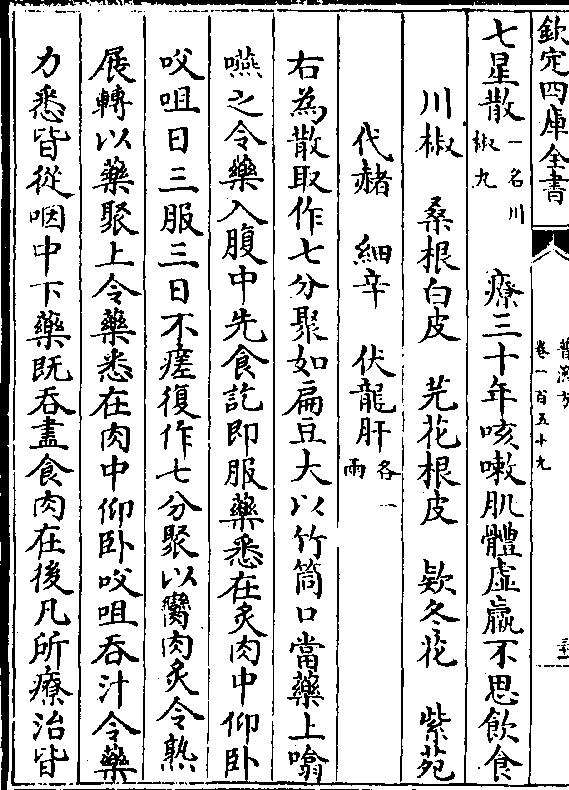 欽定四庫全書
普濟方
卷一百五十九
七星散一名川椒丸　療三十年咳嗽肌體虛羸不思飲食
川椒　桑根白皮　芫花根皮　欵冬花　紫菀
代赭　細辛　伏龍肝各一兩
右為散取作七分聚如扁豆大以竹筒口當藥上噏
嚥之令藥入腹中先食訖即服藥悉在炙肉中仰卧
㕮咀日三服三日不瘥復作七分聚以臠肉炙令熟
展轉以藥聚上令藥悉在肉中仰卧㕮咀吞汁令藥
力悉皆從咽中下藥既吞盡食肉在後凡所療治皆